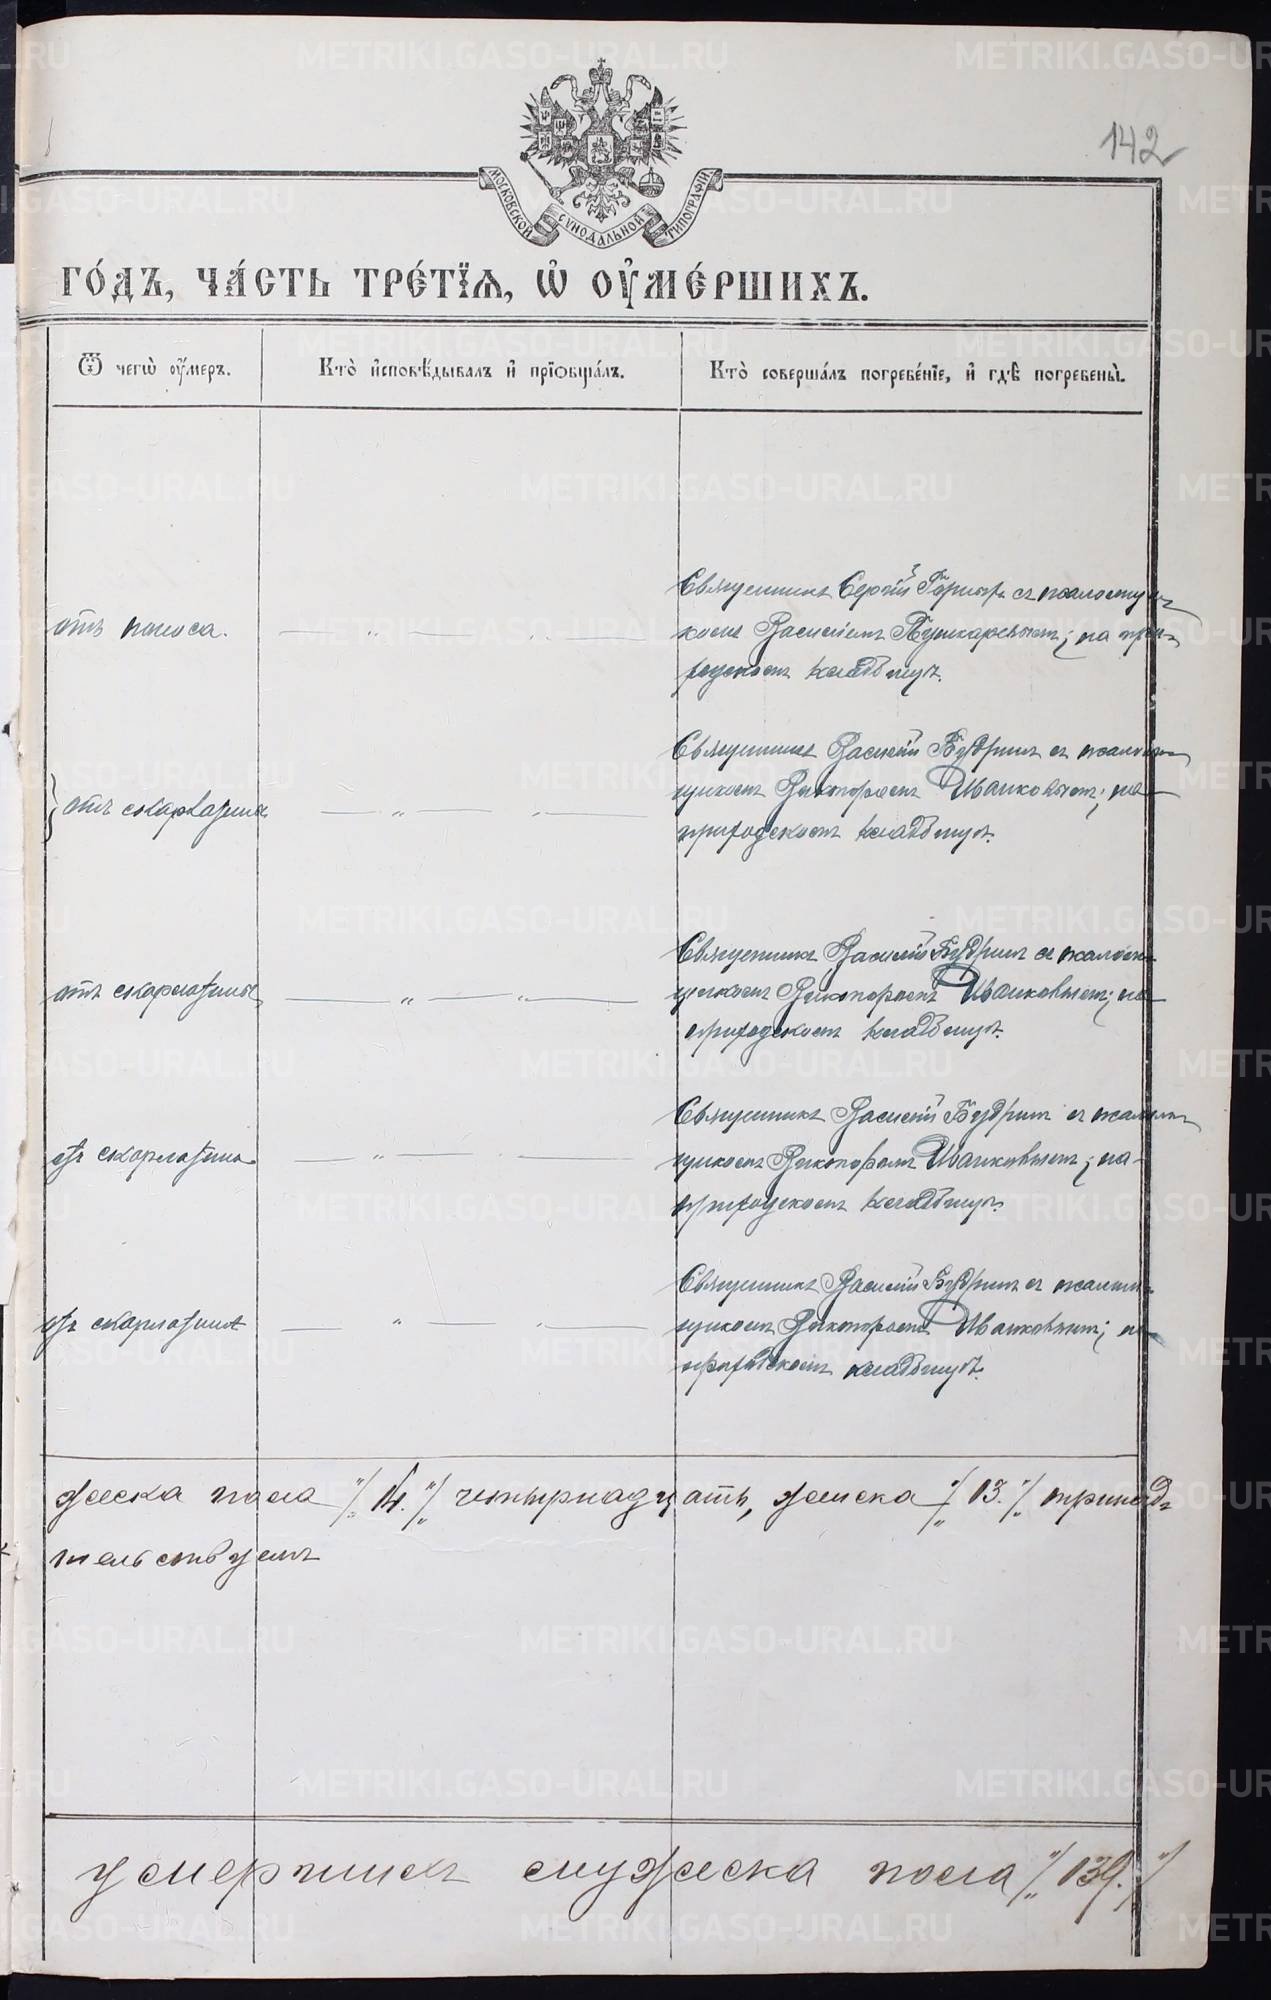 142
МОСКОВСКОЙ СѴНОДАЛЬНОЙ ТИПОГРАФІИ
ГО́ДЪ, ЧА́СТЬ ТРЕ́ТЇѦ, Ѡ҆ ОУ҆МЕ́РШИХЪ.
Ѿ чегѡ̀ оу҆́меръ.
Кто̀ и҆сповѣ́дывалъ и҆ прїѻбща́лъ.
Кто̀ соверша́лъ погребе́нїе, и҆ гдѣ̀ погребены̀.
отъ поноса.
Священникъ Сергій съ псаломщи-
комъ Василіемъ Пушкаревымъ; на при-
ходскомъ кладбищѣ.
отъ скарлатины
Священникъ Василій Будринъ съ псалом-
щикомъ Никтополиономъ Иванковымъ; на
приходскомъ кладбищѣ.
отъ скарлатины
Священникъ Василій Будринъ съ псалом-
щикомъ Иванковымъ; на
приходскомъ кладбищѣ.
отъ скарлатины
Священникъ Василій Будринъ съ псалом-
щикомъ Иванковымъ; на
приходскомъ кладбищѣ.
отъ скарлатины
Священникъ Василій Будринъ съ псалом-
щикомъ Иванковымъ; на
приходскомъ кладбищѣ.
жеска пола /14./ четырнадцать, женска /13./ тринад-
тельствуемъ
умершихъ мужеска пола /139./
METRIKI.GASO-URAL.RU